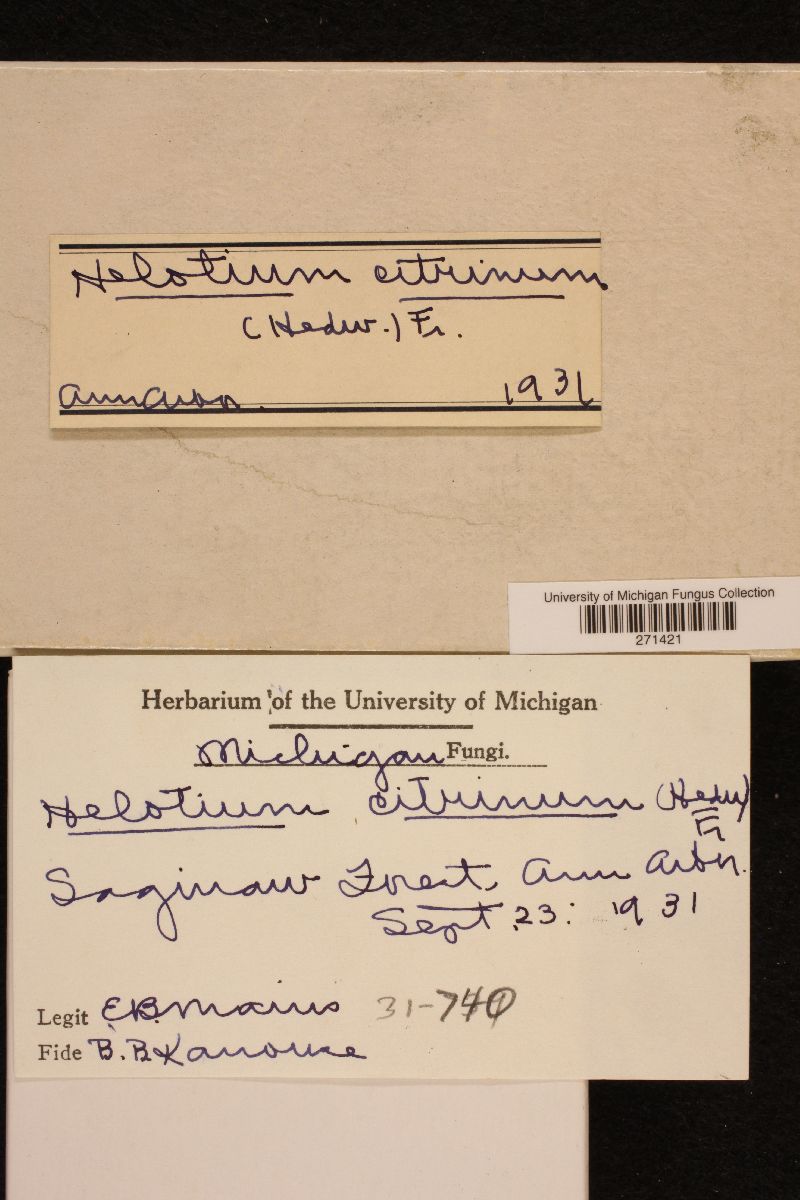 Helotium citrinum
(Hedw.) Fr.
Ann Arbor. 1931
University of Michigan Fungus Collection
271421
Herbarium of the University of Michigan
Michigan Fungi.
Helotium citrinum (Hedw)
Fr
Saginaw Forest, Ann Arbor.
Sept 23: 1931
Legit E.B. Mains 31-740
Fide B.B. Kanouse